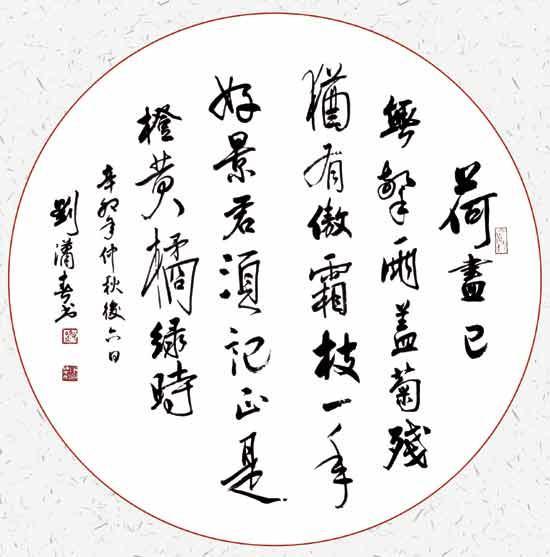 荷盡已
無擎雨盖菊殘
猶有傲霜枝一年
好景君須記正是
橙黄橘緑時
辛卯年仲秋後六日
劉春书